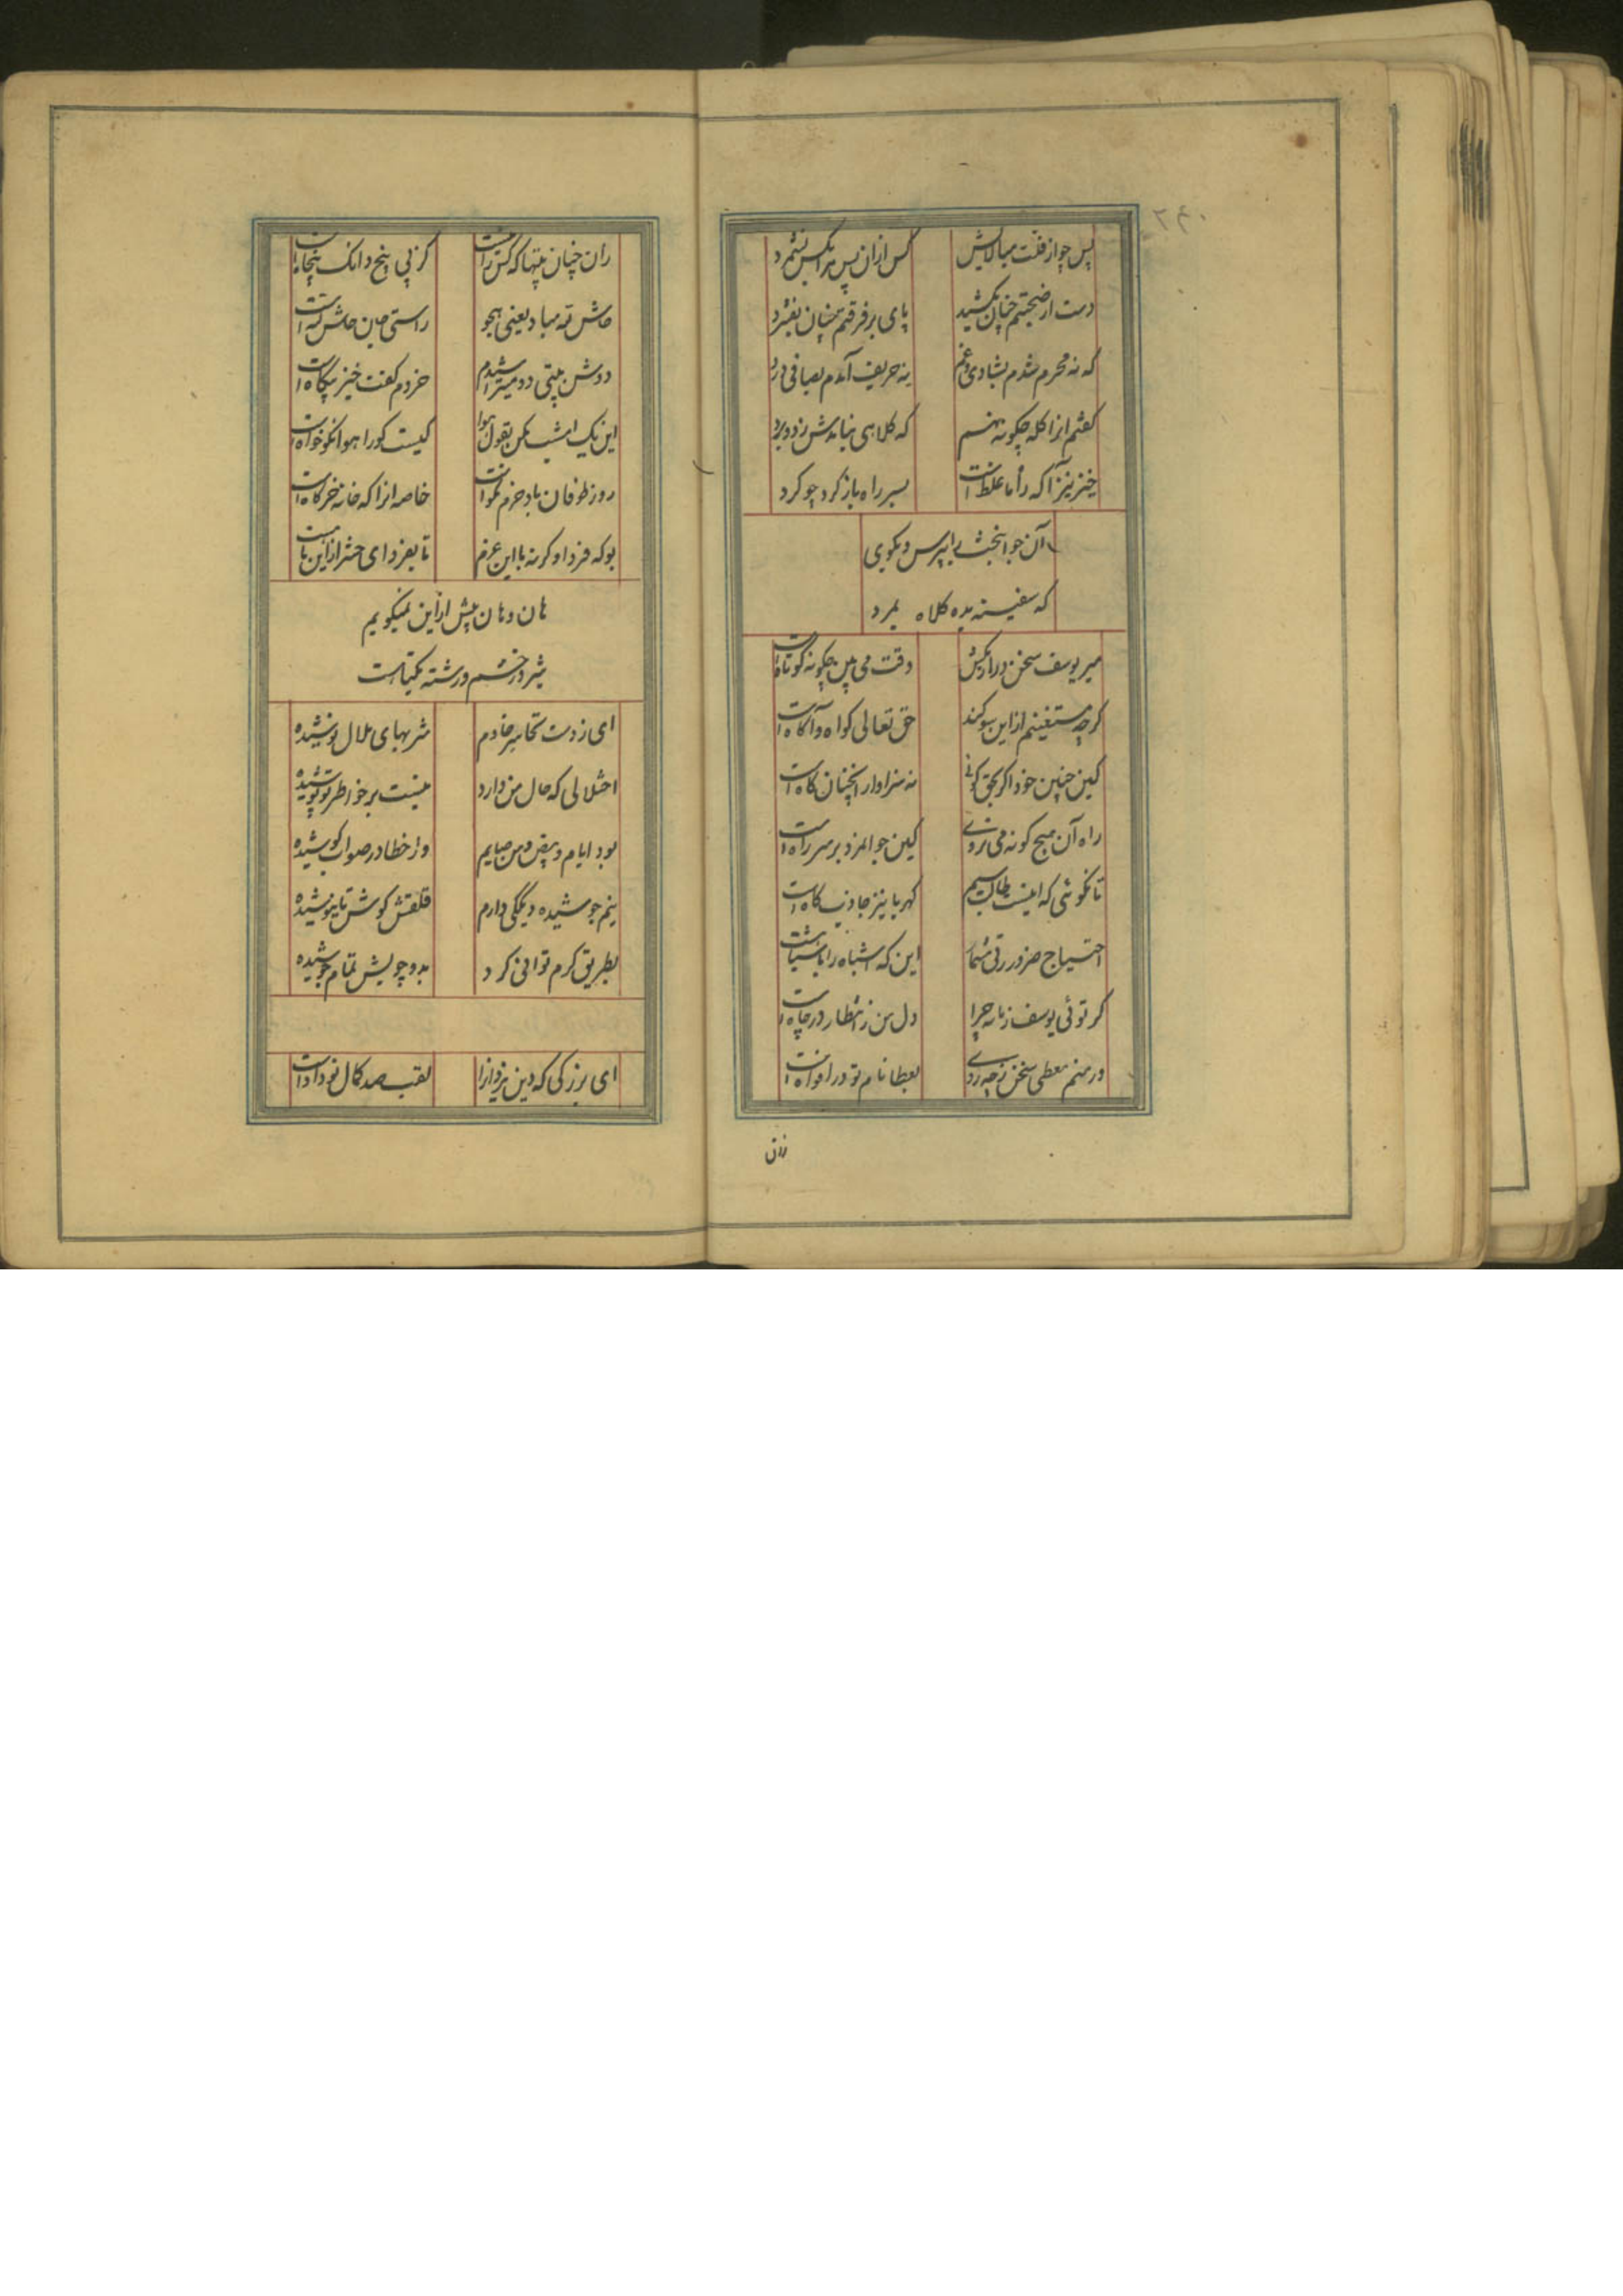 ۲۴۰
پس چو از قلت مبالاتش کس ازان پس بدانکس نشمرد
دست از صحبتم چنان بکشید پای بر فرقتم چنان بفشرد
که نه محرم شدم بشادی و غم نه حریف آمدم بصافی و درد
گفتم انرا کله چگونه نهم که کلاهی نیامدش زد و برد
خیز نیز آکه راه ما غلط است بسر راه باز گرد چو گرد
آن جوانبخت را بپرس و بگوی
که سفینه بده کلاه ببرد
میر یوسف سخن دراز مکش وقت می بین چگونه کوتاه است
گرچه مستغنیم ازین سوگند حق تعالی گواه و آگاه است
کین چنین جود اگر بحق گوئی نه سزاوار آنچنان گاه است
راه آن هیچ گونه می نروی کین جوانمرد بر سر راه است
تا نگوئی که اینست طالب سیم کهربا نیز جاذب کاه است
احتیاج ضرورتی مشمار این که اشباه را باشباه است
گر توئی یوسف زمانه چرا دل من ز انتظار در چاه است
ور منم معطی سخن ز چه روی بعطا نام تو در افواه است
زان
زان چنان بیتها که کس را نیست گرنی پنج دانک پنجاه است
حاش لله مباد یعنی هجو راستی جای حاش لله است
دوش بیتی دو میتراشیدم خردم گفت خیز بیگاه است
این یک امشب مکن بقول هوا کیست کو را هوا نکو خواه است
روز طوفان باد حزم نکوست خاصه انرا که خانه خرگاه است
بو که فردا وگرنه با این عزم تا بفردای حشر ازین با است
هان و هان بیش ازین نمیگویم
شیر در خشم و رشته یکتا است
ای ز دست تو خادم شربهای ملال نوشیده
اختلالی که حال من دارد نیست بر خاطر تو پوشیده
بود ایام و بیض من صایم واز خطا در صواب کوشیده
نیم جوشیده دیگکی دارم قلقش گوش تا نیوشیده
بطریق کرم توانی کرد بدو چوبیش تمام جوشیده
ای بزرگی که دین یزدانرا لقب صد کمال نو دادست